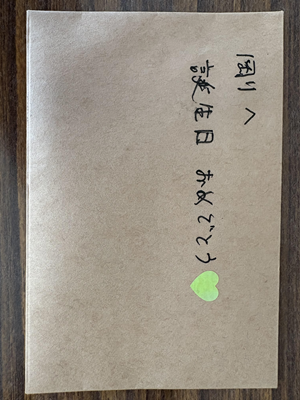 剛へ
誕生日 おめでとう